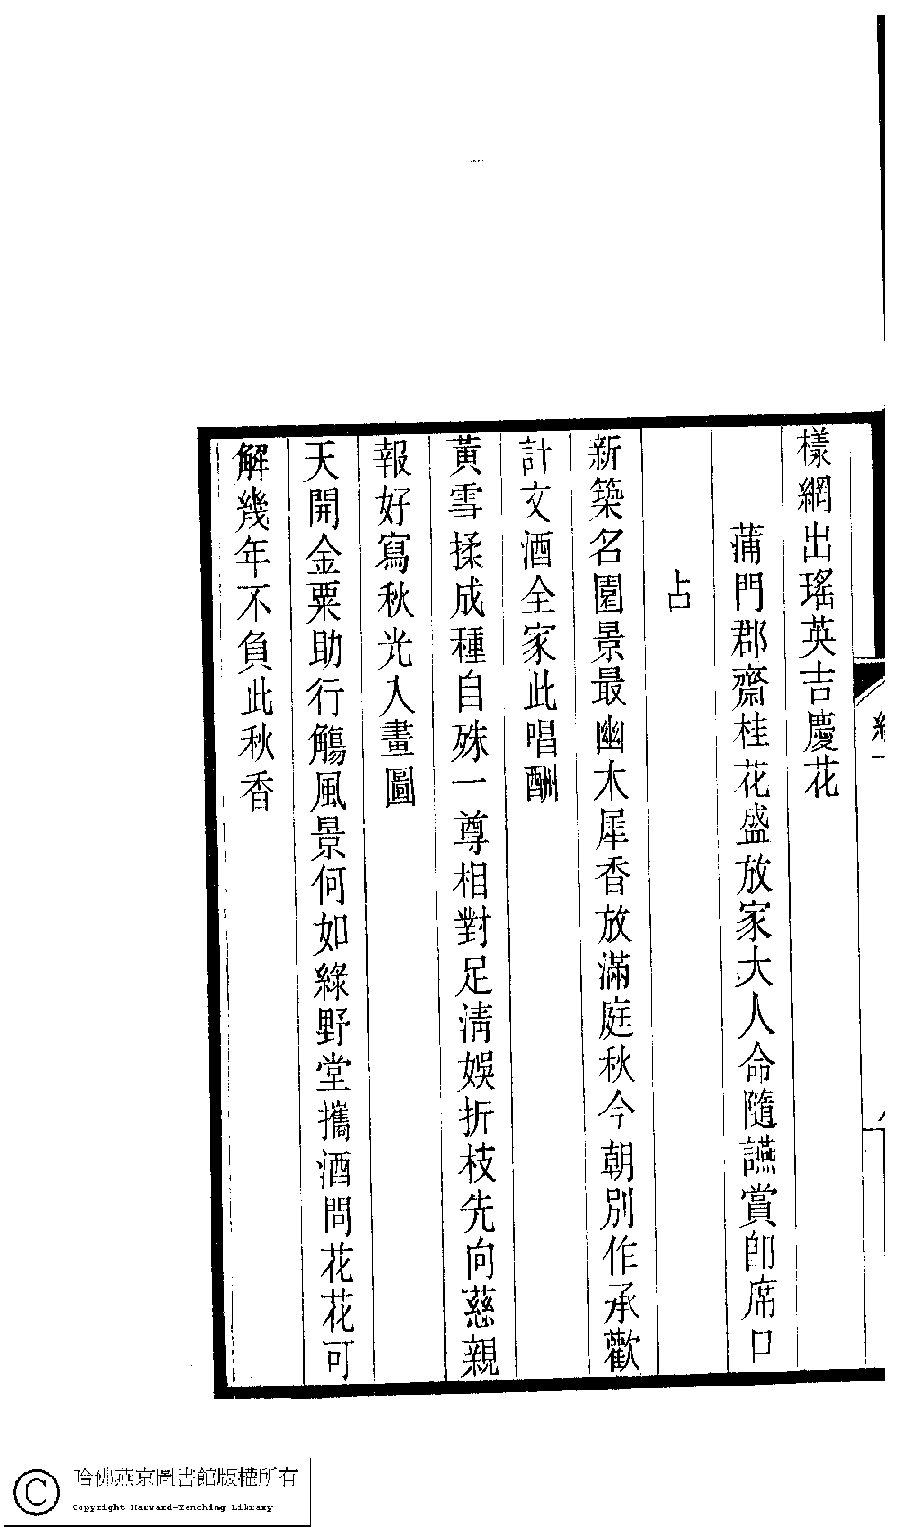 樣網出瑤英吉慶花
蒲門郡齋桂花盛放家大人命隨讌賞即席口
占
新築名園景最幽木犀香放滿庭秋今朝別作承歡
計文酒全家此唱酬
黃雪揉成種自殊一尊相對足清娛折枝先向慈親
報好寫秋光入畫圖
天開金粟助行觴風景何如綠野堂攜酒問花花可
解幾年不負此秋香
哈佛燕京圖書館版權所有
Copyright Harvard-Yenching Library